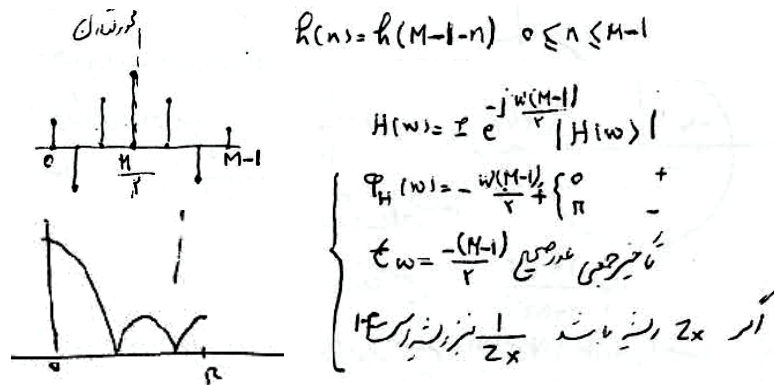 محور تقارن
h(n)=h(M-1-n) 0≤n≤M-1
0 M/۲ M-1
H(w)=± e^{-j w(M-1)/۲} |H(w)|
φ_H(w)=-w(M-1)/۲ + { 0 +
π -
τw = -(M-1)/۲ تأخیر جمعی عدد صحیح
0 π
اگر Zx ریشه باشد 1/Zx نیز ریشه است